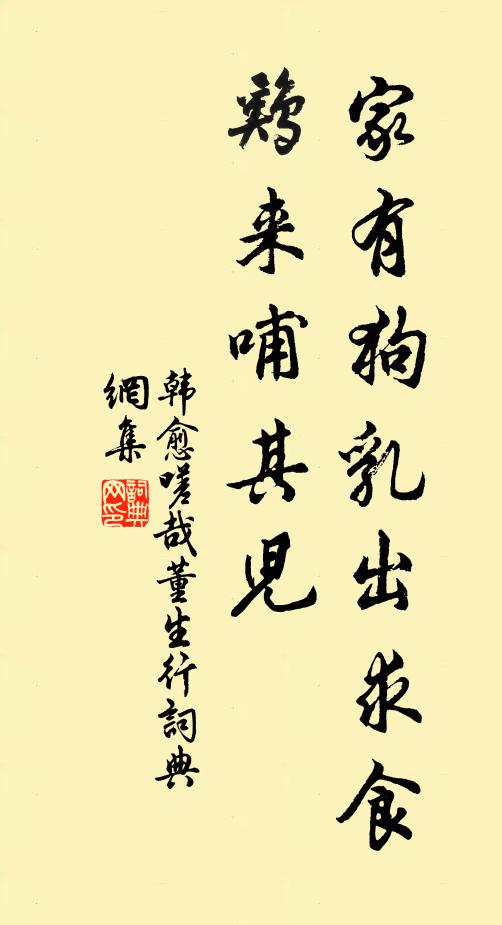 家有狗乳出求食
鷄来哺其児
韩愈嗟哉董生行詞典
網集
詞典
网印